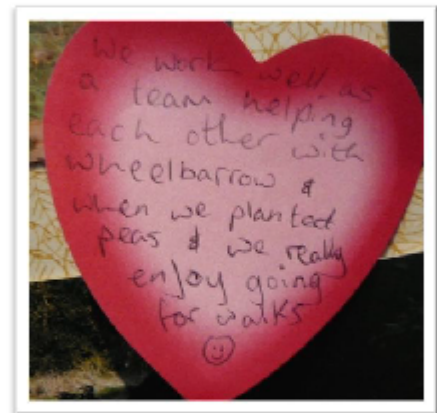 We work well as
a team helping
each other with
wheelbarrow &
when we planted
peas & we really
enjoy going
for walks